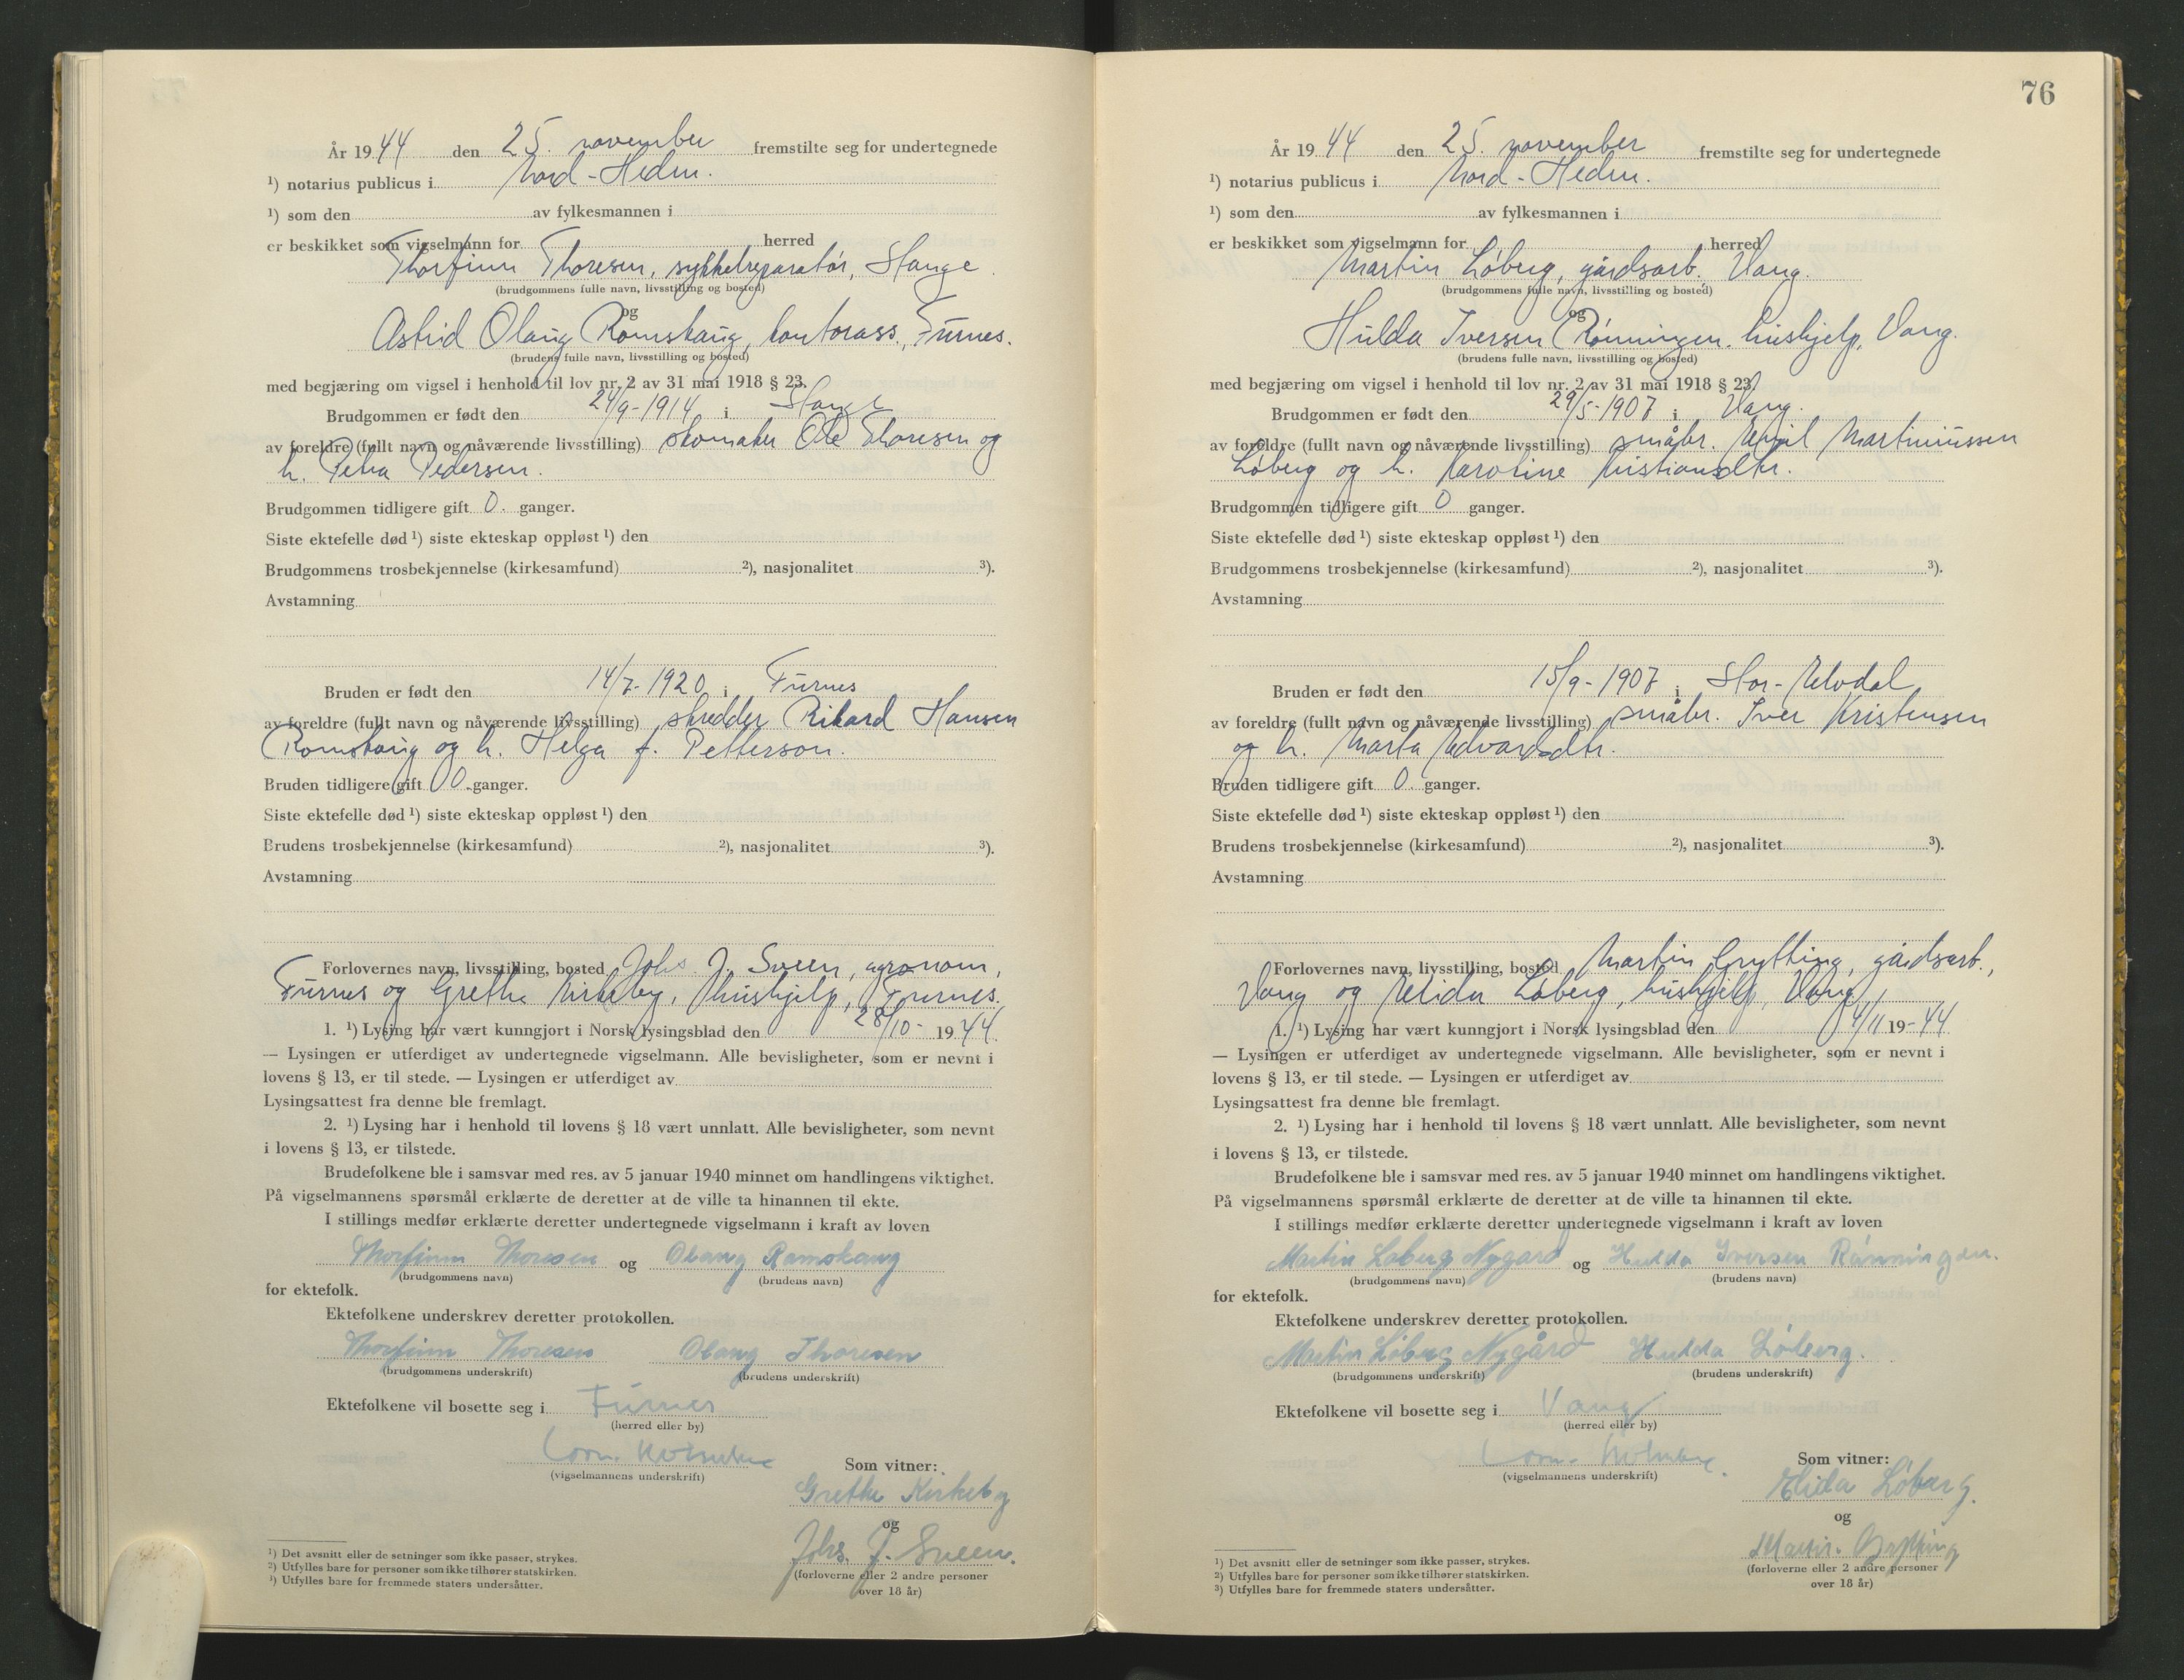 År 1944 den 25. november fremstilte seg for undertegnede
¹) notarius publicus i Nord-Hedm.
¹) som den av fylkesmannen i
er beskikket som vigselmann for herred
Thorfinn Thoresen, sykkelreparatör, Stange.
(brudgommens fulle navn, livsstilling og bosted)
og
Astrid Olaug Romskaug, kontorass., Furnes.
(brudens fulle navn, livsstilling og bosted)
med begjæring om vigsel i henhold til lov nr. 2 av 31 mai 1918 § 23.
Brudgommen er født den 24/9-1914 i Stange
av foreldre (fullt navn og nåværende livsstilling) skomaker Ole Thoresen og
h. Petra Pedersen.
Brudgommen tidligere gift 0. ganger.
Siste ektefelle død ¹) siste ekteskap oppløst ¹) den
Brudgommens trosbekjennelse (kirkesamfund) ²), nasjonalitet ³).
Avstamning
Bruden er født den 14/7-1920 i Furnes
av foreldre (fullt navn og nåværende livsstilling) skredder Rikard Hansen
Romskaug og h. Helga f. Petterson.
Bruden tidligere gift 0 ganger.
Siste ektefelle død ¹) siste ekteskap oppløst ¹) den
Brudens trosbekjennelse (kirkesamfund) ²), nasjonalitet ³).
Avstamning
Forlovernes navn, livsstilling, bosted Johs. J. Sveen, agronom,
Furnes og Grethe Kirkeby, hushjelp, Furnes.
1. ¹) Lysing har vært kunngjort i Norsk lysingsblad den 28/10- 1944.
— Lysingen er utferdiget av undertegnede vigselmann. Alle bevisligheter, som er nevnt i
lovens § 13, er til stede. — Lysingen er utferdiget av
Lysingsattest fra denne ble fremlagt.
2. ¹) Lysing har i henhold til lovens § 18 vært unnlatt. Alle bevisligheter, som nevnt
i lovens § 13, er tilstede.
Brudefolkene ble i samsvar med res. av 5 januar 1940 minnet om handlingens viktighet.
På vigselmannens spørsmål erklærte de deretter at de ville ta hinannen til ekte.
I stillings medfør erklærte deretter undertegnede vigselmann i kraft av loven
Thorfinn Thoresen og Olaug Romskaug
(brudgommens navn) (brudens navn)
for ektefolk.
Ektefolkene underskrev deretter protokollen.
Thorfinn Thoresen Olaug Thoresen
(brudgommens underskrift) (brudens underskrift)
Ektefolkene vil bosette seg i Furnes
(herred eller by)
(vigselmannens underskrift)
Som vitner:
Grethe Kirkeby
og
Johs. J. Sveen.
(forloverne eller 2 andre personer
over 18 år)
¹) Det avsnitt eller de setninger som ikke passer, strykes.
²) Utfylles bare for personer som ikke tilhører statskirken.
³) Utfylles bare for fremmede staters undersåtter.
76
År 1944 den 25. november fremstilte seg for undertegnede
¹) notarius publicus i Nord-Hedm.
¹) som den av fylkesmannen i
er beskikket som vigselmann for herred
Martin Löberg, gårdsarb. Vang.
(brudgommens fulle navn, livsstilling og bosted)
og
Hulda Iversen Rönningen, hushjelp, Vang.
(brudens fulle navn, livsstilling og bosted)
med begjæring om vigsel i henhold til lov nr. 2 av 31 mai 1918 § 23.
Brudgommen er født den 29/5-1907 i Vang.
av foreldre (fullt navn og nåværende livsstilling) småbr. Emil Martiniussen
Löberg og h. Karoline Kristiansdtr.
Brudgommen tidligere gift 0 ganger.
Siste ektefelle død ¹) siste ekteskap oppløst ¹) den
Brudgommens trosbekjennelse (kirkesamfund) ²), nasjonalitet ³).
Avstamning
Bruden er født den 15/9-1907 i Stor-Elvdal
av foreldre (fullt navn og nåværende livsstilling) småbr. Iver Kristensen
og h. Marta Edvardsdtr.
Bruden tidligere gift 0. ganger.
Siste ektefelle død ¹) siste ekteskap oppløst ¹) den
Brudens trosbekjennelse (kirkesamfund) ²), nasjonalitet ³).
Avstamning
Forlovernes navn, livsstilling, bosted Martin Grytting, gårdsarb.,
Vang og Elida Löberg, hushjelp, Vang
1. ¹) Lysing har vært kunngjort i Norsk lysingsblad den 4/11 19-44
— Lysingen er utferdiget av undertegnede vigselmann. Alle bevisligheter, som er nevnt i
lovens § 13, er til stede. — Lysingen er utferdiget av
Lysingsattest fra denne ble fremlagt.
2. ¹) Lysing har i henhold til lovens § 18 vært unnlatt. Alle bevisligheter, som nevnt
i lovens § 13, er tilstede.
Brudefolkene ble i samsvar med res. av 5 januar 1940 minnet om handlingens viktighet.
På vigselmannens spørsmål erklærte de deretter at de ville ta hinannen til ekte.
I stillings medfør erklærte deretter undertegnede vigselmann i kraft av loven
Martin Loberg Nygard og Hulda Iversen Rönningen.
(brudgommens navn) (brudens navn)
for ektefolk.
Ektefolkene underskrev deretter protokollen.
Martin Löberg Nygård Hulda Löberg.
(brudgommens underskrift) (brudens underskrift)
Ektefolkene vil bosette seg i Vang
(herred eller by)
(vigselmannens underskrift)
Som vitner:
Elida Löberg.
og
Martin Grytting
(forloverne eller 2 andre personer
over 18 år)
¹) Det avsnitt eller de setninger som ikke passer, strykes.
²) Utfylles bare for personer som ikke tilhører statskirken.
³) Utfylles bare for fremmede staters undersåtter.